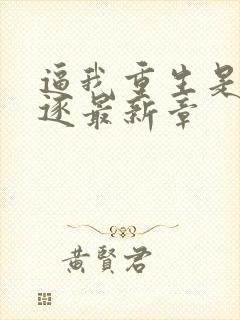 逼我重生是
逐最新章
黃賢君